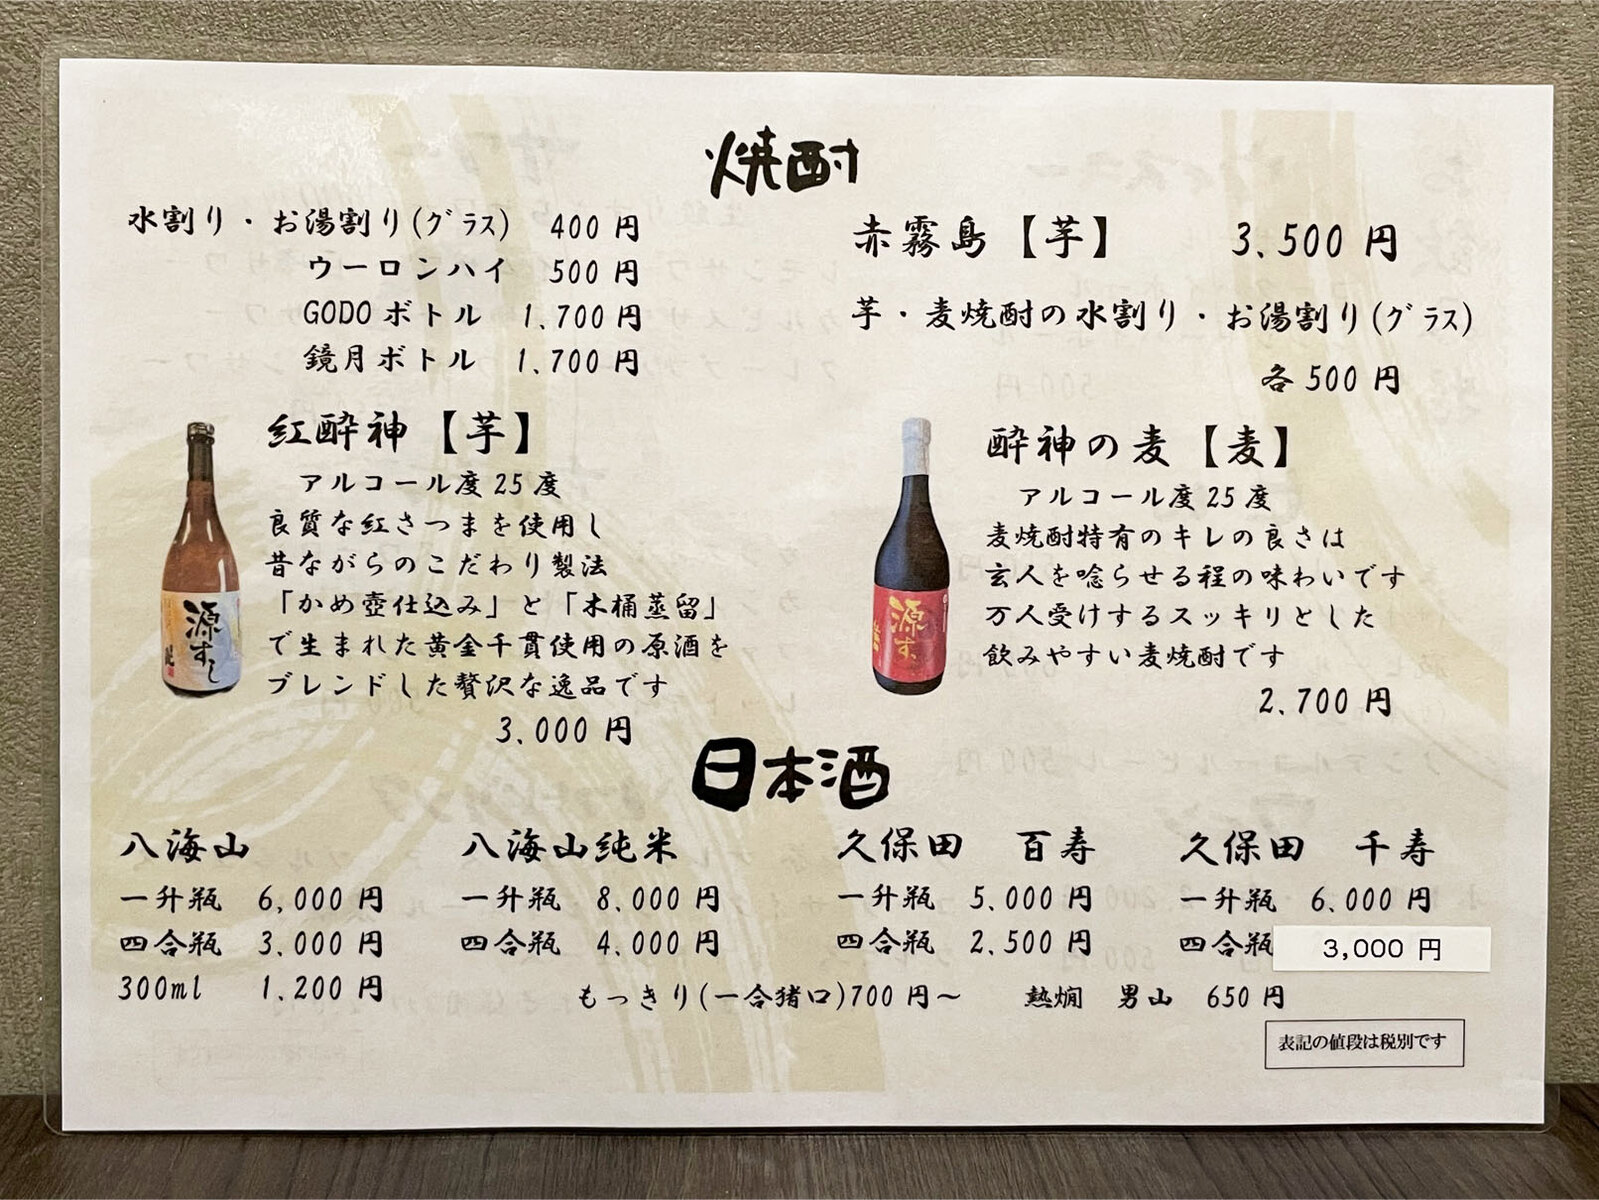 焼酎
水割り・お湯割り(グラス) 400円
ウーロンハイ 500円
GODOボトル 1,700円
鏡月ボトル 1,700円
赤霧島【芋】 3,500円
芋・麦焼酎の水割り・お湯割り(グラス)
各500円
紅酔神【芋】
アルコール度25度
良質な紅さつまを使用し
昔ながらのこだわり製法
「かめ壺仕込み」と「木桶蒸留」
で生まれた黄金千貫使用の原酒を
ブレンドした贅沢な逸品です
3,000円
源すし
酔神の麦【麦】
アルコール度25度
麦焼酎特有のキレの良さは
玄人を唸らせる程の味わいです
万人受けするスッキリとした
飲みやすい麦焼酎です
2,700円
源す
日本酒
八海山
一升瓶 6,000円
四合瓶 3,000円
300ml 1,200円
八海山純米
一升瓶 8,000円
四合瓶 4,000円
久保田 百寿
一升瓶 5,000円
四合瓶 2,500円
久保田 千寿
一升瓶 6,000円
四合瓶 3,000円
もっきり(一合猪口)700円〜 熱燗 男山 650円
表記の値段は税別です